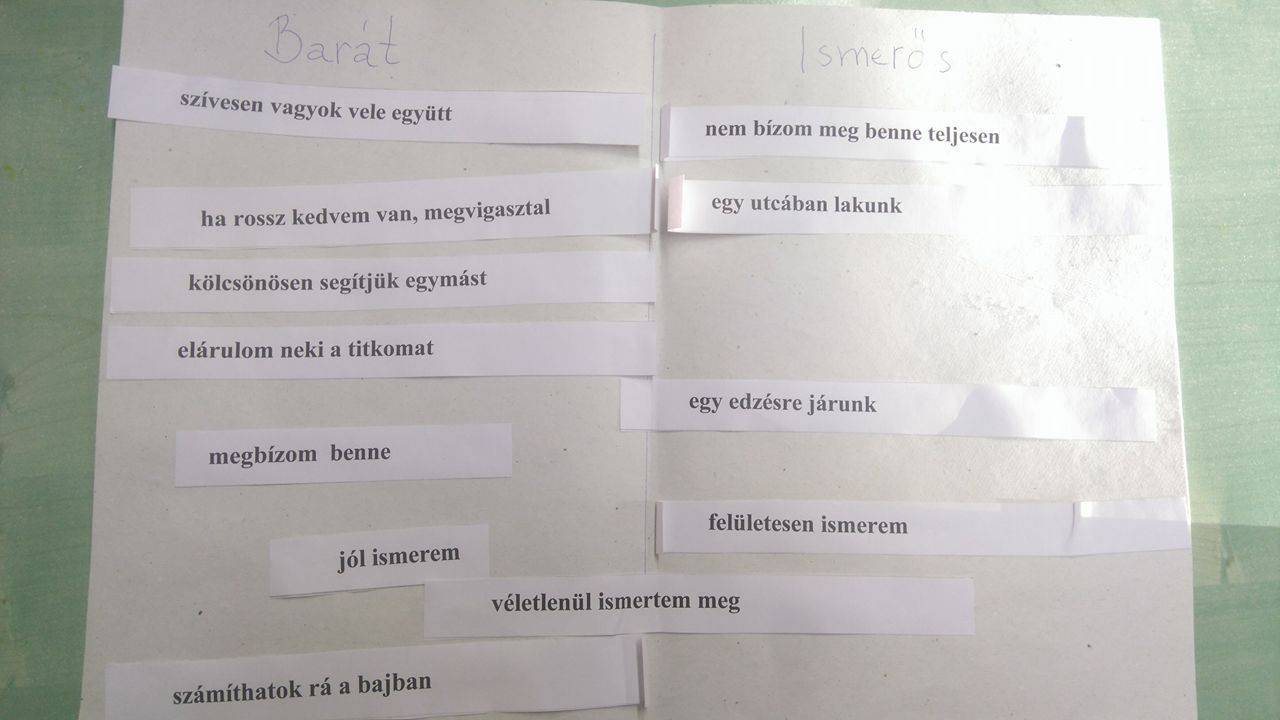 Barát
szívesen vagyok vele együtt
ha rossz kedvem van, megvigasztal
kölcsönösen segítjük egymást
elárulom neki a titkomat
megbízom benne
jól ismerem
véletlenül ismertem meg
számíthatok rá a bajban
Ismerős
nem bízom meg benne teljesen
egy utcában lakunk
egy edzésre járunk
felületesen ismerem